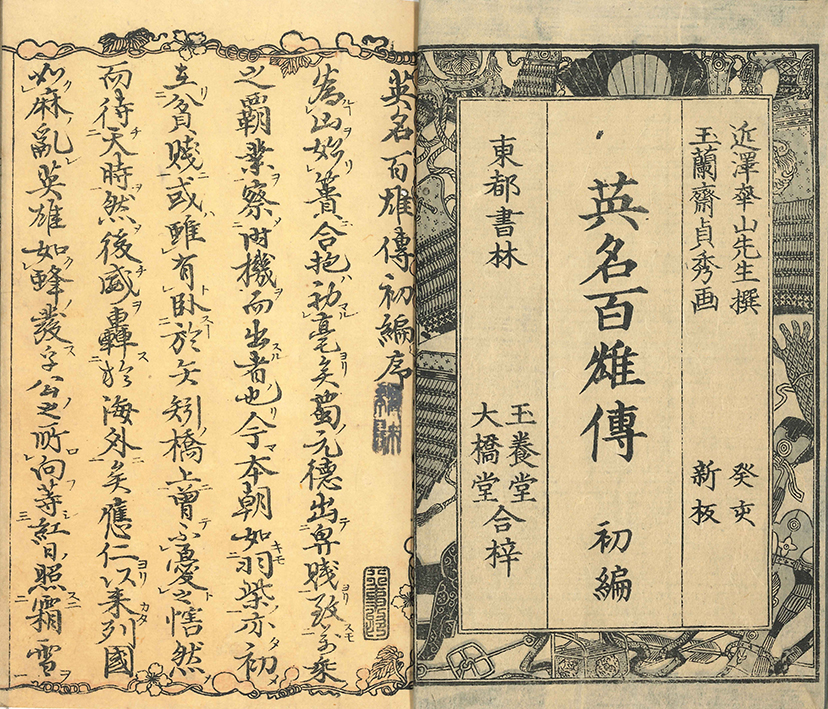 近澤華山先生撰　癸亥
玉蘭齋貞秀画　新板
英名百雄傳　初編
東都書林　玉養堂
大橋堂　合梓
英名百雄傳初編序
為山始簣合抱初毫矣蜀元德出専賤致万乗
之覇業察时機而出者也今本朝如羽柴亦初
在貧賤或雖有臥於矢矧橋上曾不憂之恬然
而待天時然後威轟於海外矣應仁以来列國
如麻乱英雄如蜂發公之所向等紅日照霜雪